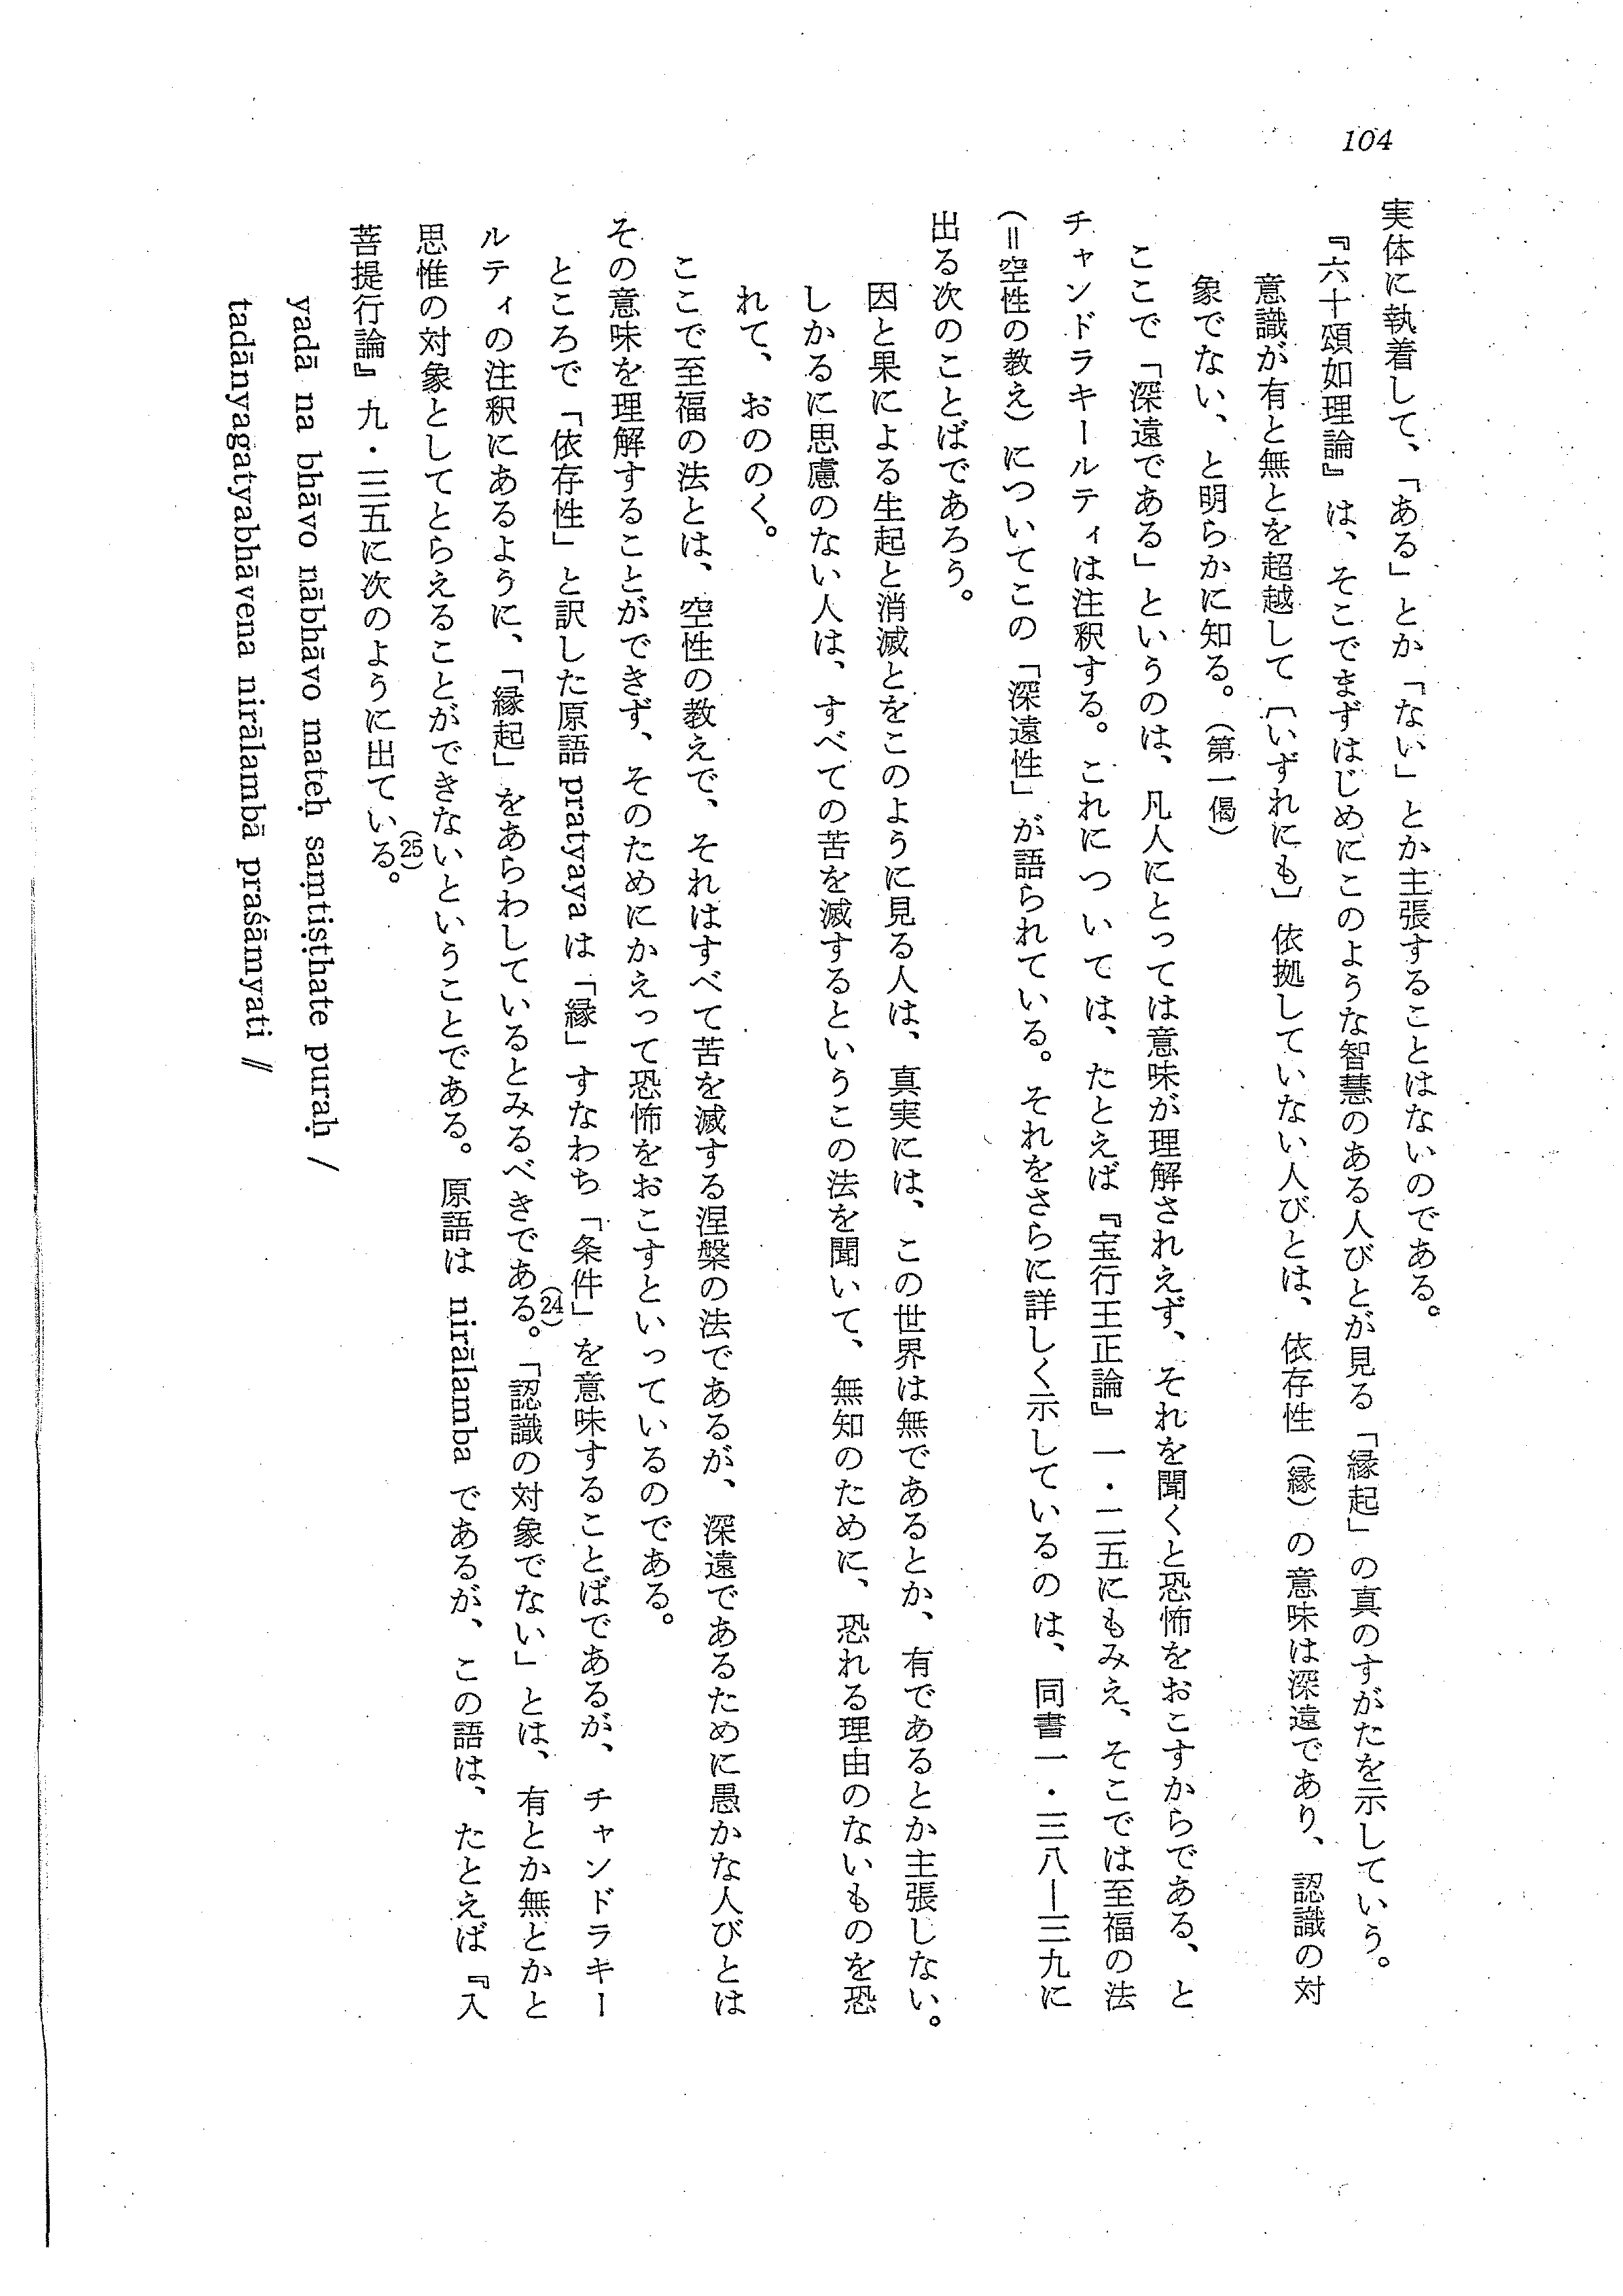 104
実体に執着して、「ある」とか「ない」とか主張することはないのである。
『六十頌如理論』は、そこでまずはじめにこのような智慧のある人びとが見る「縁起」の真のすがたを示していう。
意識が有と無とを超越して〔いずれにも〕依拠していない人びとは、依存性（縁）の意味は深遠であり、認識の対
象でない、と明らかに知る。（第一偈）
ここで「深遠である」というのは、凡人にとっては意味が理解されえず、それを聞くと恐怖をおこすからである、と
チャンドラキールティは注釈する。これについては、たとえば『宝行王正論』一・二五にもみえ、そこでは至福の法
（＝空性の教え）についてこの「深遠性」が語られている。それをさらに詳しく示しているのは、同書一・三八―三九に
出る次のことばであろう。
因と果による生起と消滅とをこのように見る人は、真実には、この世界は無であるとか、有であるとか主張しない。
しかるに思慮のない人は、すべての苦を滅するというこの法を聞いて、無知のために、恐れる理由のないものを恐
れて、おののく。
ここで至福の法とは、空性の教えで、それはすべて苦を滅する涅槃の法であるが、深遠であるために愚かな人びとは
その意味を理解することができず、そのためにかえって恐怖をおこすといっているのである。
ところで「依存性」と訳した原語 pratyaya は「縁」すなわち「条件」を意味することばであるが、チャンドラキー
ルティの注釈にあるように、「縁起」をあらわしているとみるべきである。(24)「認識の対象でない」とは、有とか無とかと
思惟の対象としてとらえることができないということである。原語は nirālamba であるが、この語は、たとえば『入
菩提行論』九・三五に次のように出ている。(25)
yadā na bhāvo nābhāvo mateḥ saṃtiṣṭhate puraḥ /
tadānyagatyabhāvena nirālambā praśāmyati //